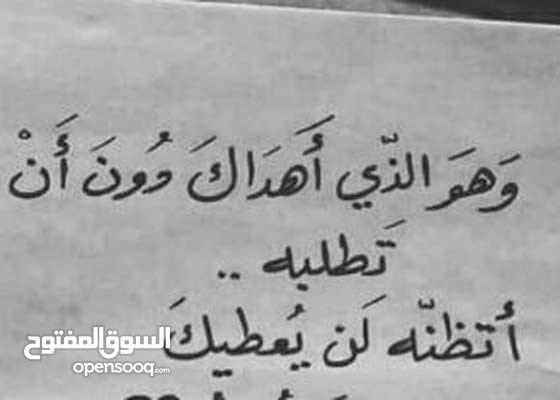 وَهوَ الذّي أَهدَاكَ دُونَ أَنْ
تَطلبه ..
أتظنّه لَن يُعطيكَ
السوق المفتوح
opensooq.com